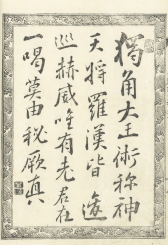 獨角大王術称神
天將羅漢皆遠
巡赫威唯有老君在
一喝莫由秘厥真